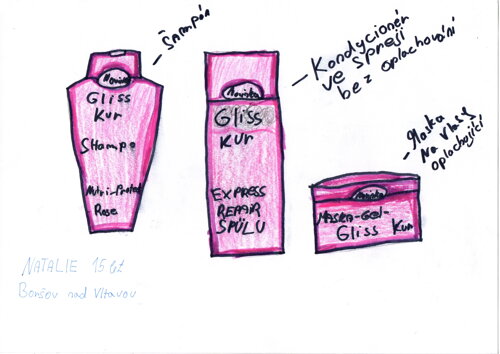 Šampón
Novinka
Gliss
Kur
Shampo
Nutri-Protect
Rose
Kondycionér
ve spreji
bez oplachování
Novinka
Gliss
Kur
EXPRESS
REPAIR
SPÜLU
Maska
na vlasy
oplachující
Novinka
MASKA-GEL-
Gliss Kur
NATALIE 15 let
Boršov nad Vltavou